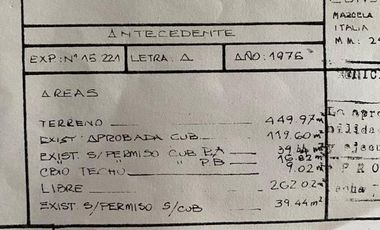 ANTECEDENTE
EXP: Nº 15 221 LETRA: A AÑO: 1976
AREAS
TERRENO 449.97m²
EXIST. APROBADA CUB. 119.60m²
EXIST. S/PERMISO CUB P.A 39.44m²
" " " P.B 16.82m²
CBIO TECHO 9.02m²
LIBRE 262.02m²
EXIST S/PERMISO S/CUB 39.44m²
MARCELA
ITALIA
M M: 2
La apro
bilida
y ejecu
P R O